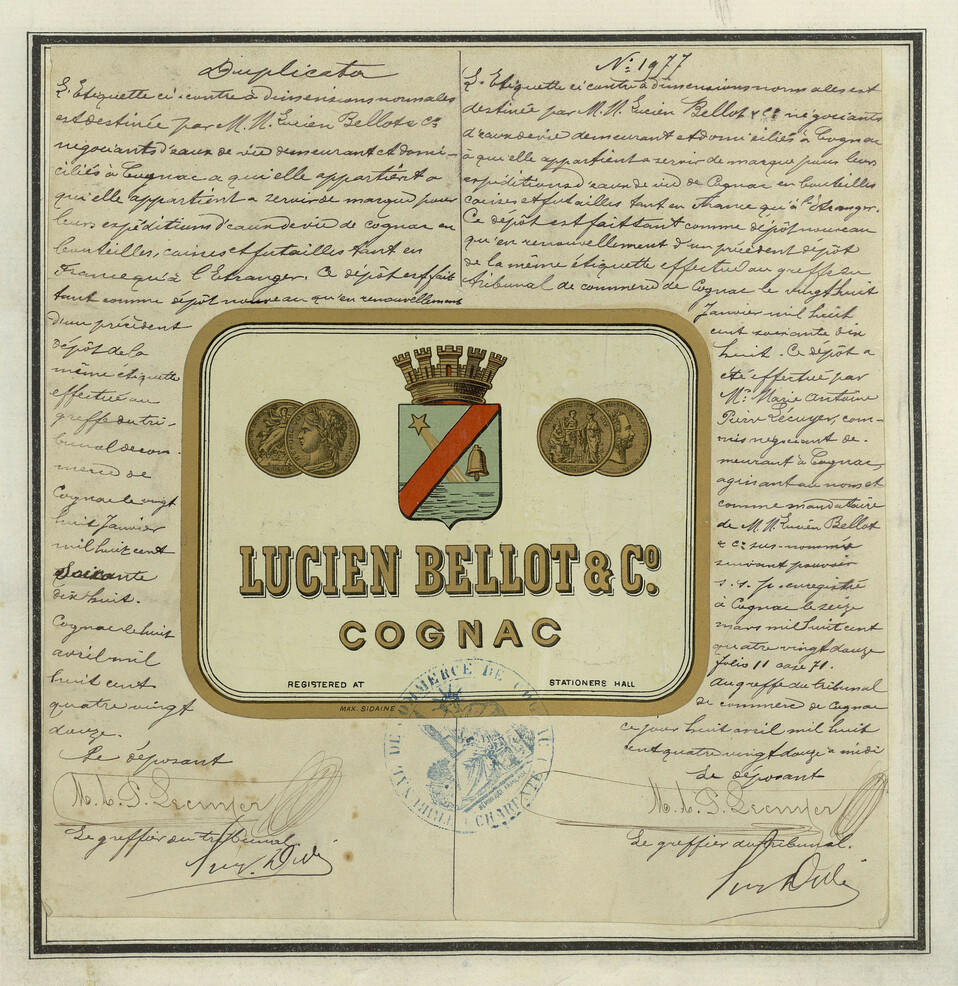 Duplicata
L'Etiquette ci-contre à dimensions normales
est destinée par M.M. Lucien Bellot & Cº
negociants d'eaux de vie demeurant et domi-
ciliés à Cognac a qu'elle appartient a
qu'elle appartient a servir de marque pour
leurs expéditions d'eaux de vie de cognac en
bouteilles, caisses et futailles tant en
France qu'à l'Etranger. Ce dépôt est fait
tant comme dépôt nouveau qu'en renouvellement
d'un précédent
dépôt de la
même étiquette
effectué au
greffe du tri-
bunal de com-
merce de
Cognac le vingt
huit Janvier
mil huit cent
soixante
dix huit.
Cognac le huit
avril mil
huit cent
quatre vingt
douze.
Le déposant
M. A. P. Lecuyer
Le greffier du tribunal
Nº 1977
L'Etiquette ci contre à dimensions normales est
destinée par M.M. Lucien Bellot & Cº négociants
d'eaux de vie demeurant et domiciliés à Cognac
à qui elle appartient a servir de marque pour leurs
expéditions d'eaux de vie de Cognac en bouteilles
caisses et futailles tant en France qu'à l'Etranger.
Ce dépôt est fait tant comme dépôt nouveau
qu'en renouvellement d'un précédent dépôt
de la même étiquette effectué au greffe du
tribunal de commerce de Cognac le vingt huit
Janvier mil huit
cent soixante dix
huit. Ce dépôt a
été effectué par
Mr Marie Antoine
Pierre Lécuyer, com-
mis négociant de-
meurant à Cognac,
agissant au nom et
comme mandataire
de M.M. Lucien Bellot
& Cº sus-nommés
suivant pouvoir
s. s. p. enregistré
à Cognac le seize
mars mil huit cent
quatre vingt douze
folio 11 case 71.
Au greffe du tribunal
de commerce de Cognac
ce jour huit avril mil huit
cent quatre vingt douze à midi
Le déposant
M. A. P. Lecuyer
Le greffier du tribunal.
LUCIEN BELLOT & Cº.
COGNAC
REGISTERED AT STATIONERS HALL
MAX. SIDAINE
TRIBUNAL DE COMMERCE DE COGNAC
CHARENTE
REPUBLIQUE FRANÇAISE